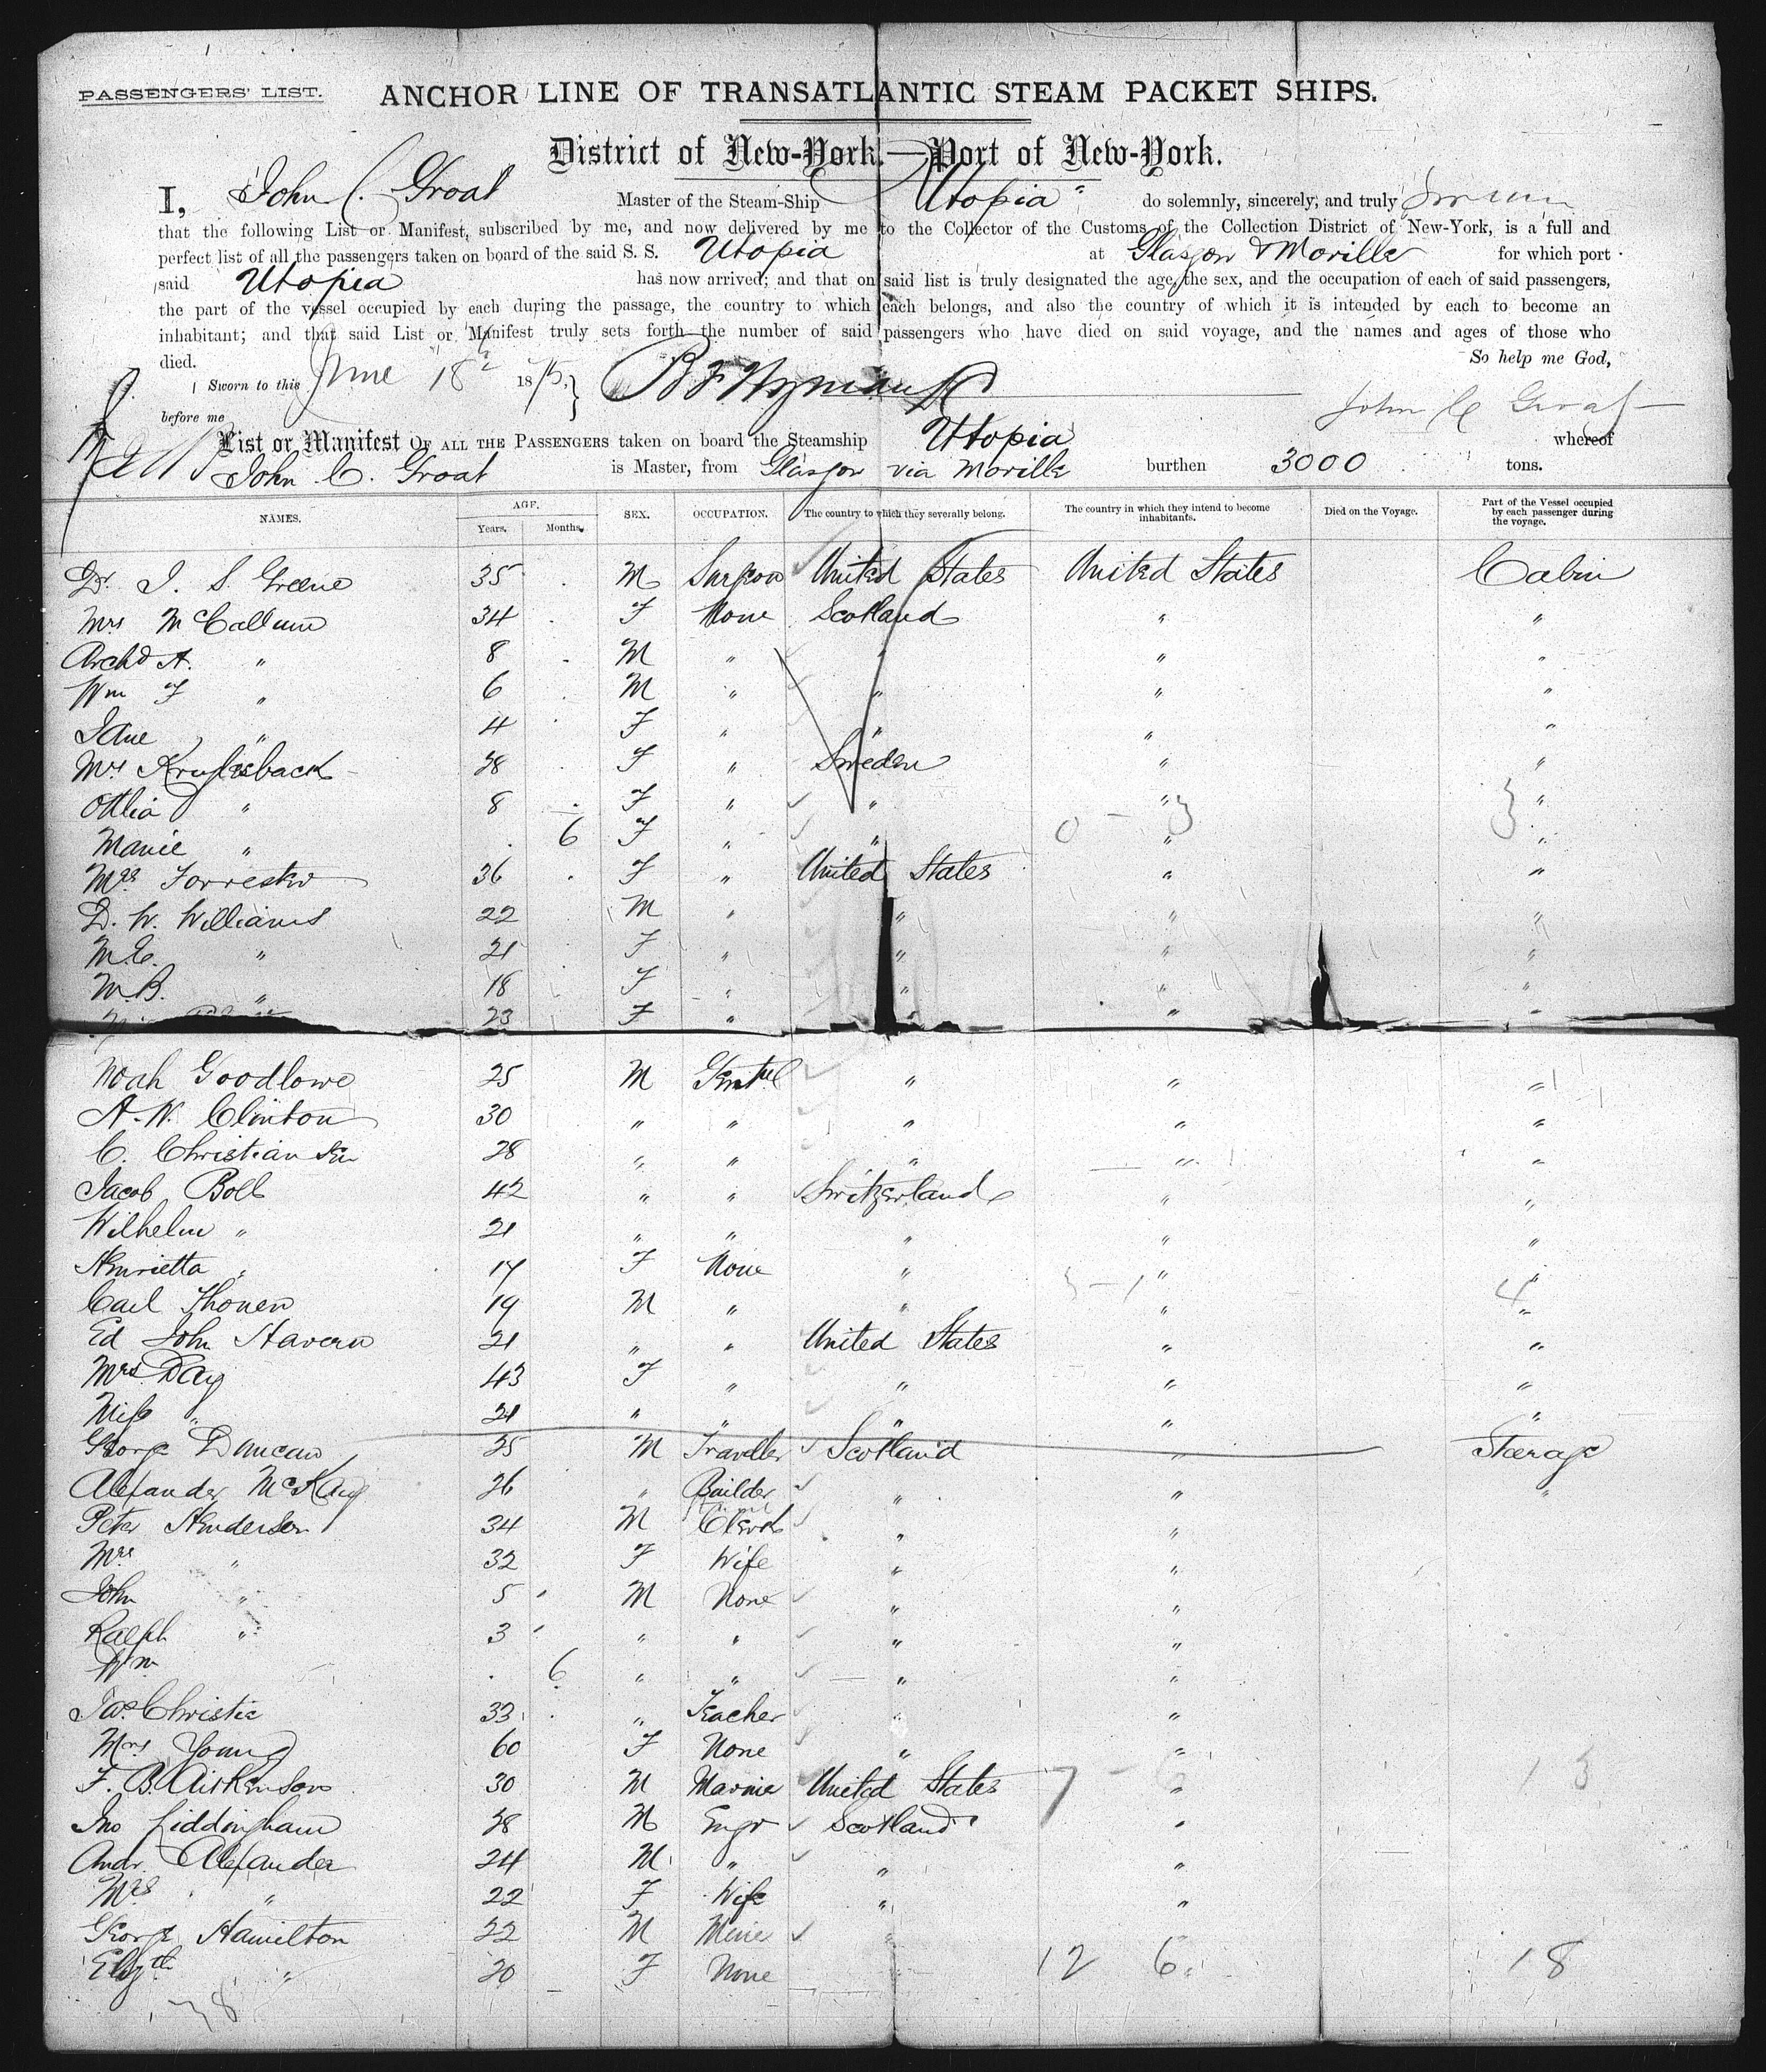 PASSENGERS' LIST.
ANCHOR LINE OF TRANSATLANTIC STEAM PACKET SHIPS.
District of New-York.—Port of New-York.
I, John C. Groat Master of the Steam-Ship Utopia do solemnly, sincerely, and truly
that the following List or Manifest, subscribed by me, and now delivered by me to the Collector of the Customs of the Collection District of New-York, is a full and
perfect list of all the passengers taken on board of the said S. S. Utopia at Glasgow & Moville for which port
said Utopia has now arrived; and that on said list is truly designated the age, the sex, and the occupation of each of said passengers,
the part of the vessel occupied by each during the passage, the country to which each belongs, and also the country of which it is intended by each to become an
inhabitant; and that said List or Manifest truly sets forth the number of said passengers who have died on said voyage, and the names and ages of those who
died. So help me God,
Sworn to this June 18th 1875
before me John C Groat
List or Manifest OF ALL THE PASSENGERS taken on board the Steamship Utopia whereof
John C. Groat is Master, from Glasgow via Moville burthen 3000 tons.
NAMES. AGE. Years. Months. SEX. OCCUPATION. The country to which they severally belong. The country in which they intend to become inhabitants. Died on the Voyage. Part of the Vessel occupied by each passenger during the voyage.
Dr. J. S. Greene 35 M Surgeon United States United States Cabin
Mrs McCallum 34 F None Scotland " "
Archd A. " 8 M " " " "
Wm F " 6 M " " " "
Jane " 4 F " " " "
Mrs 28 F " Sweden " "
Ottlia " 8 F " " " "
Marie " 6 F " " " "
Mrs Forrester 36 F " United States " "
D. W. Williams 22 M " " " "
M.E. " 21 F " " " "
M.B. " 18 F " " " "
23 F " " " "
Noah Goodlowe 25 M " " "
A. W. Clinton 30 " " " " "
C. Christiansen 28 " " " " "
Jacob Boll 42 " " Switzerland " "
Wilhelm " 21 " " " " "
Henrietta " 17 F None " " "
Carl Thonen 19 M " " " "
Ed John Havern 21 " " United States " "
Mrs Day 43 F " " " "
Miss " 21 " " " " "
George Duncan 25 M Traveller Scotland " Steerage
Alexander McKay 26 " Builder " " "
Peter Henderson 34 M Clerk " "
Mrs " 32 F Wife " "
John " 5 M None " "
Ralph " 3 " " " "
Wm 6 " " " "
Jas Christie 33 " Teacher " "
Mrs Young 60 F None " "
F. B. Aitkenson 30 M United States "
Jno Liddingham 28 M Engr Scotland "
Andr. Alexander 24 M " " "
Mrs " 22 F Wife " "
George Hamilton 22 M "
Elizth " 20 F None
12 6 18